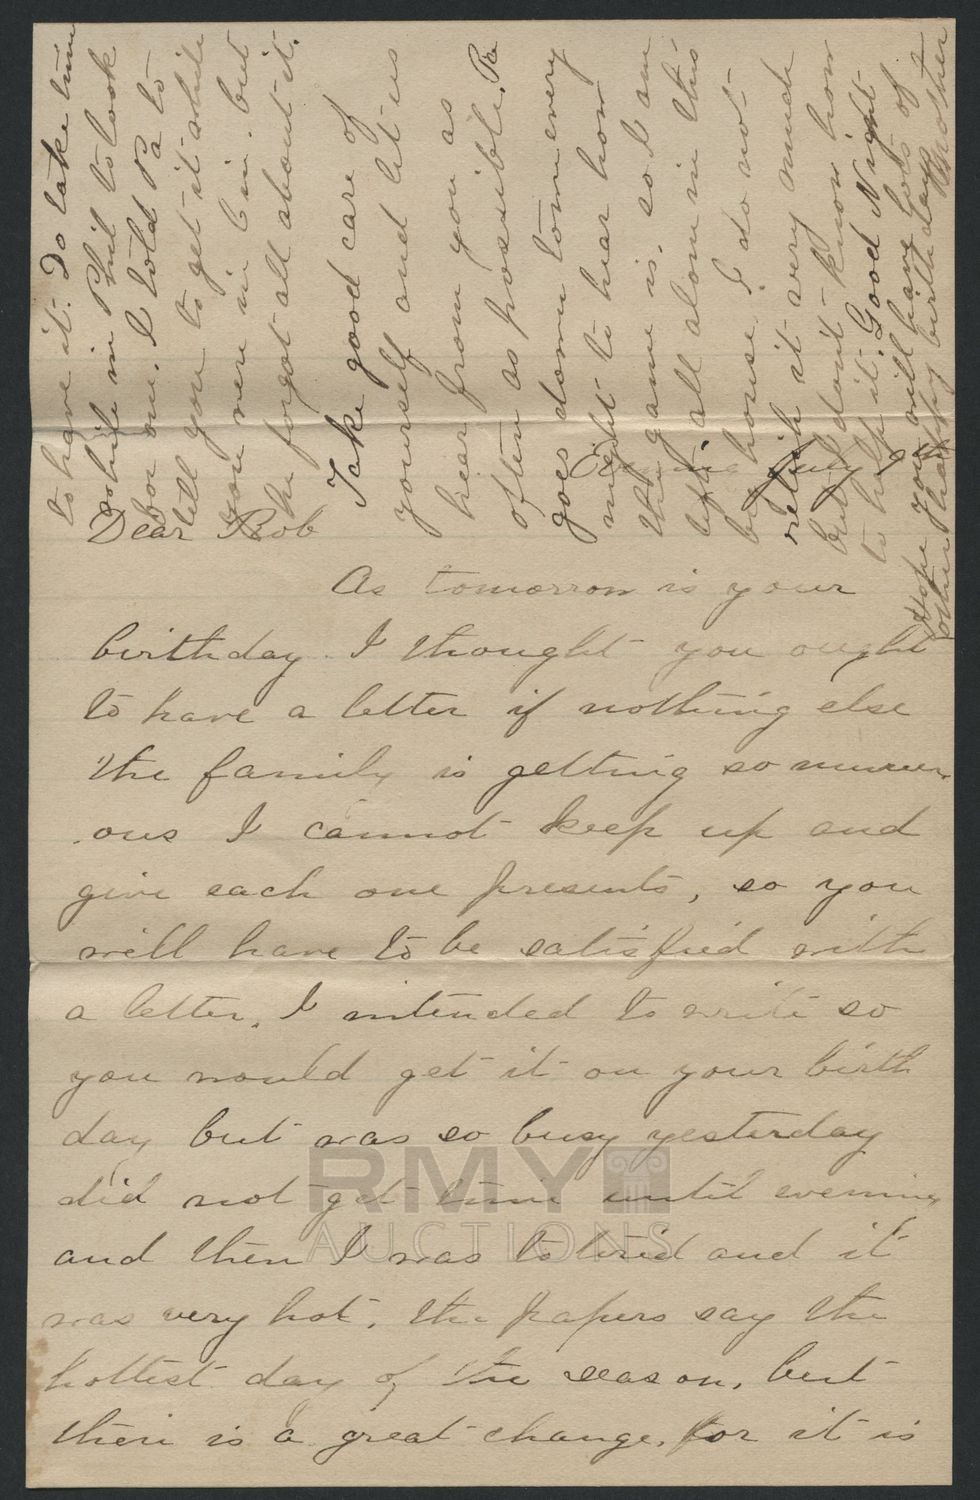 Evening July
Dear Bob
As tomorrow is your
birthday. I thought you ought
to have a letter if nothing else
the family is getting so numer-
ous I cannot keep up and
give each one presents, so you
will have to be satisfied with
a letter. I intended to write so
you would get it on your birth
day but was so busy yesterday
did not get time until evening
and then I was to tired and it
was very hot. the papers say the
hottest day of the season, but
their is a great change. for it is
to have it. Do take time
while in Phil to look
for one. I told Pa to
tell you to get it while
you were in but
he forgot all about it.
Take good care of
yourself and let us
hear from you as
often as possible. Pa
goes down town every
night to hear how
the game is. so I am
left all alone in this
big house. I do not
relish it very much
but don't know how
to help it. Good Night
Hope you will have lots of
other happy birth days
Mother
RMY
AUCTIONS